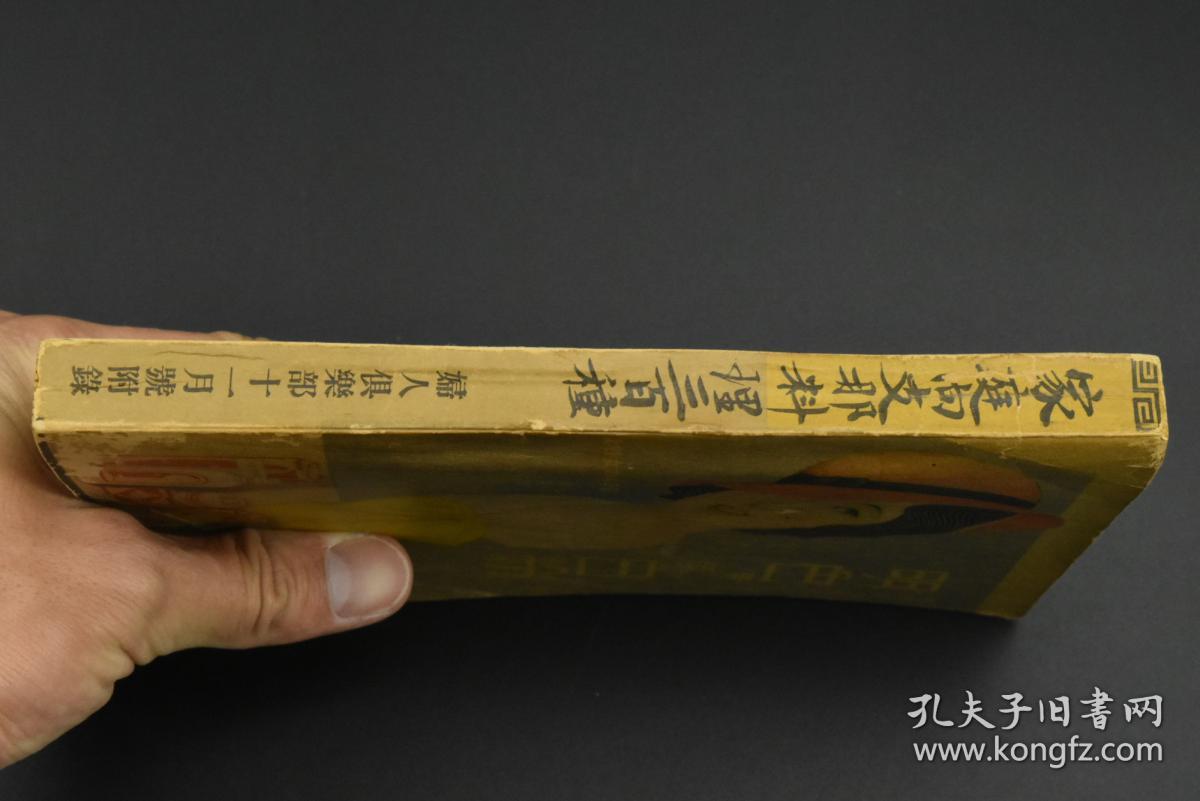 家庭向支那料理三百種
婦人倶樂部十一月號附錄
孔夫子旧書网
www.kongfz.com